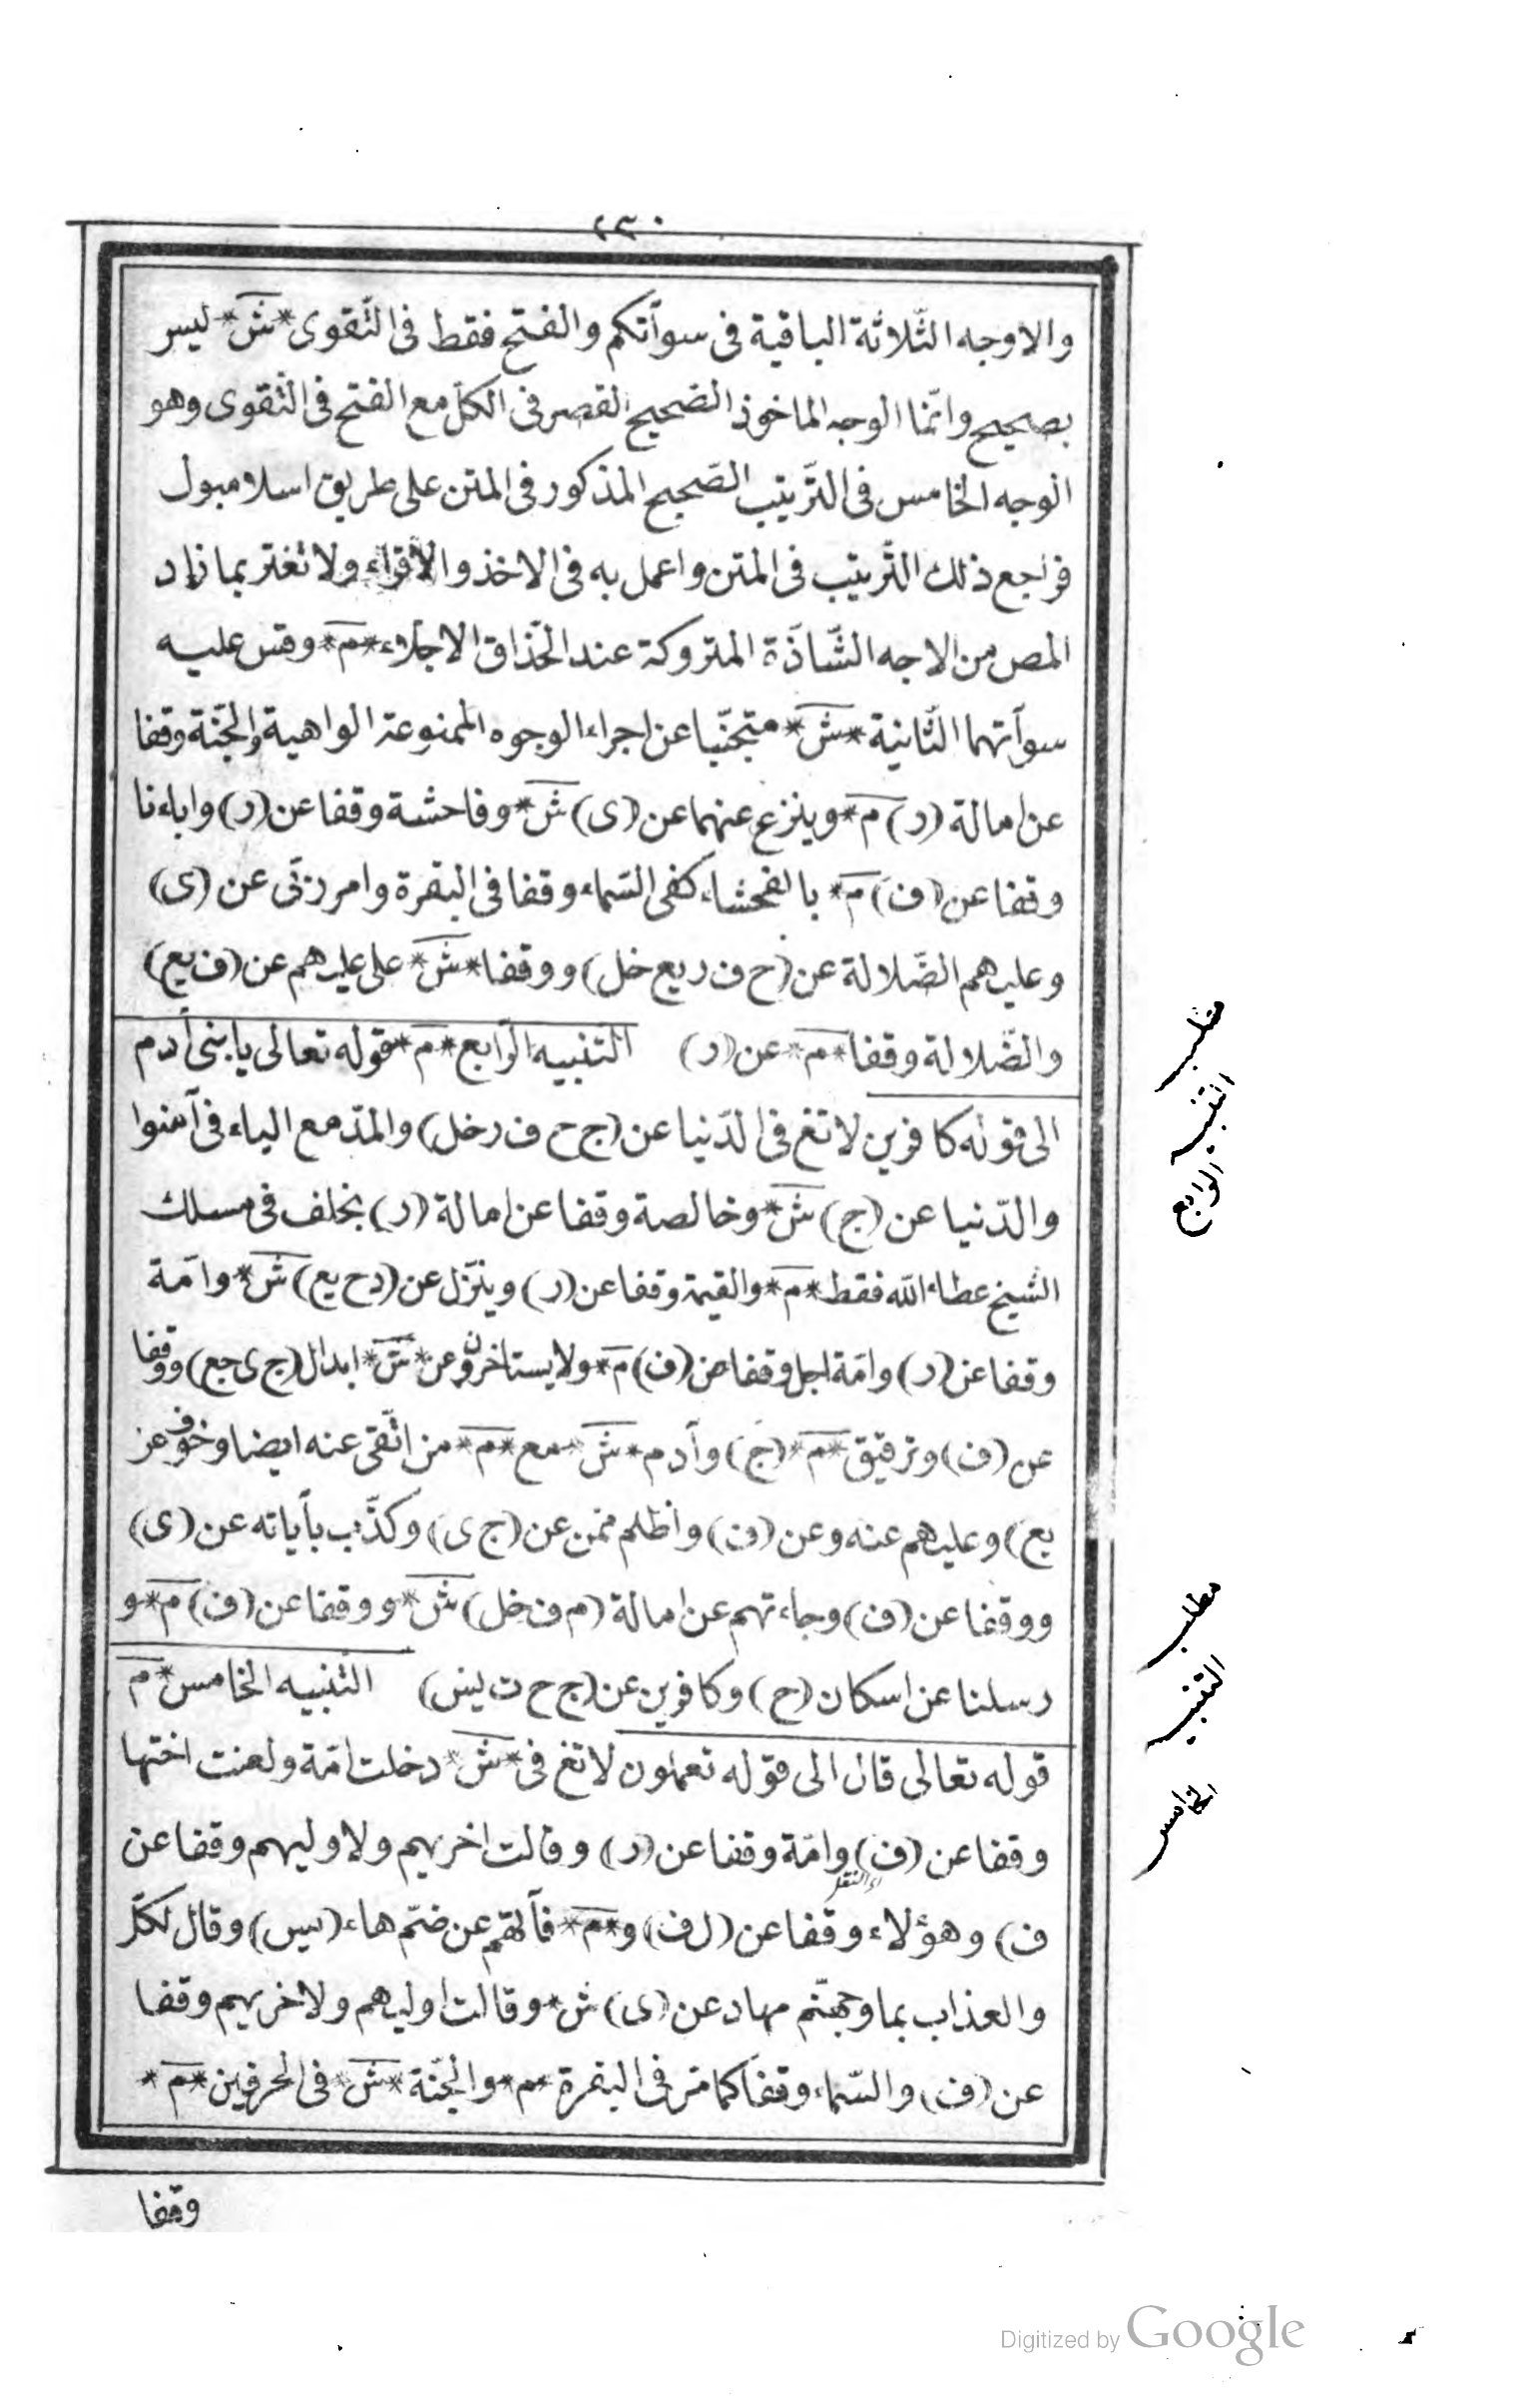 ٢٣٠
والاوجه الثّلاثة الباقية فى سوأتكم والفتح فقط فى التّقوى * ش * ليس
بصحيح وانّما الوجه المأخوذ الصّحيح القصر فى الكلّ مع الفتح فى التّقوى وهو
الوجه الخامس فى التّرتيب الصّحيح المذكور فى المتن على طريق اسلامبول
فراجع ذلك التّرتيب فى المتن واعمل به فى الاخذ والأقراء ولا تغتر بما زاد
المص من الاجه الشّاذّة المتروكة عند الحّذاق الاجلاّء * م * وقس عليه
سوأتهما الثّانية * ش * متجنّبا عن اجراء الوجوه الممنوعة الواهية والجنّة وقفا
عن امالة (ر) م * وينزع عنهما عن (ى) ش * وفاحشة وقفا عن (ر) واباءنا
وقفا عن (ف) م * بالفحشاء كفى السّماء وقفا فى البقرة وامر ربّى عن (ى)
وعليهم الضّلالة عن (ح ف ر يع خل) ووقفا * ش * على عليهم عن (ف يع)
والضّلالة وقفا * م * عن (ر) التّنبيه الرّابع * م * قوله تعالى يابنى أدم
الى قوله كافرين لا تغ فى الدّنيا عن (ج ح ف ر خل) والمدّ مع الياء فى آمنوا
والدّنيا عن (ج) ش * وخالصة وقفا عن امالة (ر) بخلف فى مسلك
الشّيخ عطاء الله فقط * م * والقيمة وقفا عن (ر) وينزّل عن (د ح يع) ش * وامّة
وقفا عن (ر) وامّة اجل وقفا عن (ف) م * ولا يستاخرون وعن * ش * ابدال (ج ى جع) ووقفا
عن (ف) وترقيق * م * (ج) وأدم * ش * مع * م * من اتّقى عنه ايضا وخوف عن
يع) وعليهم عنه وعن (ف) واظلم ممّن عن (ج ى) وكذّب بأياته عن (ى)
ووقفا عن (ف) وجاءتهم عن امالة (م ف خل) ش * ووقفا عن (ف) م * و
رسلنا عن اسكان (ح) وكافرين عن (ج ح ت يس) التّنبيه الخامس * م
قوله تعالى قال الى قوله تعملون لا تغ فى * ش * دخلت امّة ولعنت اختها
وقفا عن (ف) وامّة وقفا عن (ر) وقالت اخريهم ولاوليهم وقفا عن
اى النقل
ف) وهؤلاء وقفا عن (ل ف) و * م * فآتهم عن ضمّ هاء (يس) وقال لكلّ
والعذاب بما وجهنّم مهاد عن (ى) ش * وقالت اوليهم ولاخريهم وقفا
عن (ف) والسّماء وقفا كما مرّ فى البقرة * م * والجنّة * ش * فى الحرفين * م *
وقفا
مطلب
التنبيه
الرابع
مطلب
التنبيه
الخامس
Digitized by Google